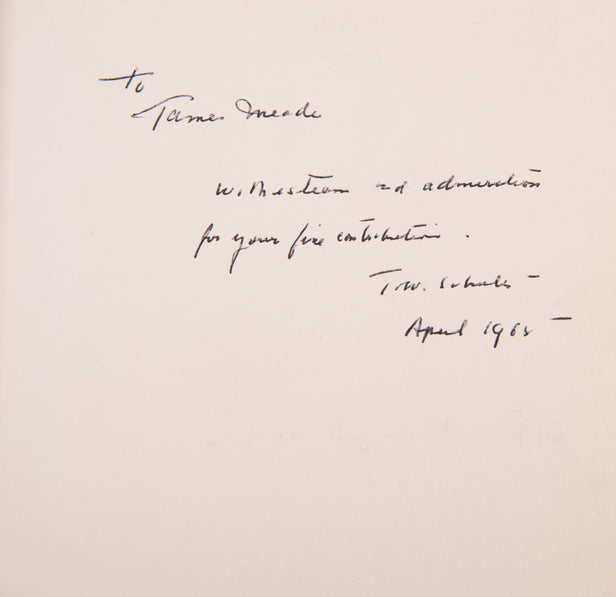 To
James Meade
with esteem and admiration
for your fine contribution.
T.W. Schultz –
April 1965 –